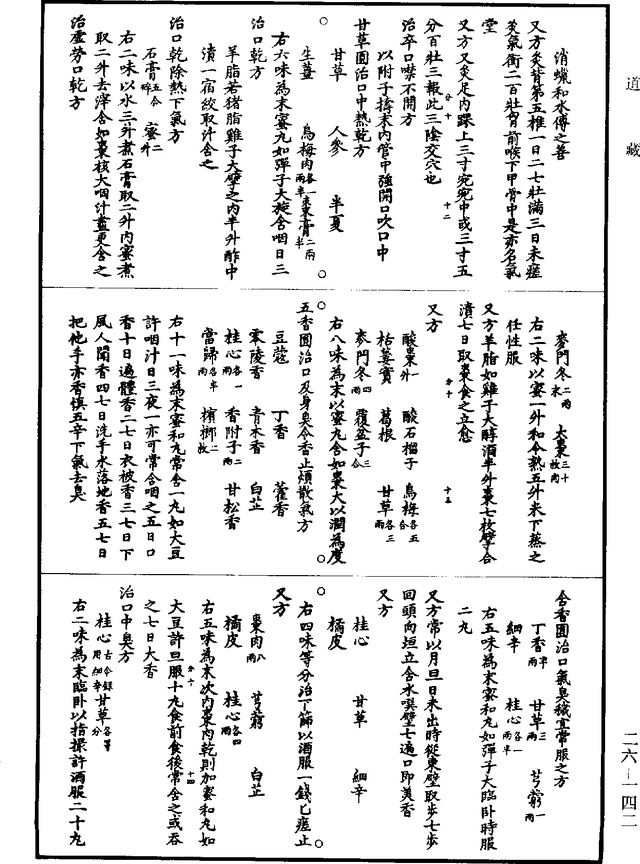 道藏
消蝋和水傅之善
又方灸背第五椎一日二七壯滿三日未瘥
灸氣衝二百壯胷前喉下甲骨中是亦名氣
堂
又方又灸足内踝上三寸宛宛中或三寸五
分百壯三報此三陰交穴也
治卒口噤不開方
以附子擣末内管中強開口吹口中
甘草圓治口中熱乾方
甘草 人參 半夏
生薑 烏梅肉各一兩半 棗膏二兩半
右六味爲末蜜丸如彈子大旋含咽日三
治口乾方
羊脂若猪脂雞子大擘之内半升酢中
漬一宿絞取汁含之
治口乾除熱下氣方
石膏五合碎 蜜二升
右二味以水三升煮石膏取二升内蜜煮
取二升去滓含如棗核大咽汁盡更含之
治虛勞口乾方
麥門冬二兩末 大棗三十枚肉
右二味以蜜一升和令熟五升米下蒸之
任性服
又方羊脂如雞子大醇酒半升棗七枚擘合
漬七日取棗食之立愈
又方
酸棗一升 酸石榴子 烏梅各五合
栝蔞實 葛根 甘草各三兩
麥門冬四兩 覆盆子三合
右八味爲末以蜜丸含如棗大以潤爲度
五香圓治口及身臭令香止煩散氣方
豆蔻 丁香 藿香
零陵香 青木香 白芷
桂心各一兩 香附子二兩 甘松香
當歸各半兩 檳榔二枚
右十一味爲末蜜和丸常含一丸如大豆
許咽汁日三夜一亦可常含咽之五日口
香十日遍體香二七日衣被香三七日下
風人聞香四七日洗手水落地香五七日
把他手亦香慎五辛下氣去臭
含香圓治口氣臭穢宜常服之方
丁香半兩 甘草三兩 芎藭一兩
細辛 桂心各一兩半
右五味爲末蜜和丸如彈子大臨臥時服
二丸
又方常以月旦日未出時從東壁取步七步
回頭向垣立含水噀壁七遍口即美香
又方
桂心 甘草 細辛
橘皮
右四味等分治下篩以酒服一錢匕瘥止
又方
棗肉八兩 芎藭 白芷
橘皮 桂心各四兩
右五味爲末次内棗肉乾則加蜜和丸如
大豆許旦服十丸食前食後常含之或吞
之七日大香
治口中臭方
桂心古今錄用細辛 甘草各等分
右二味爲末臨臥以指撮許酒服二十九
二六—一四二